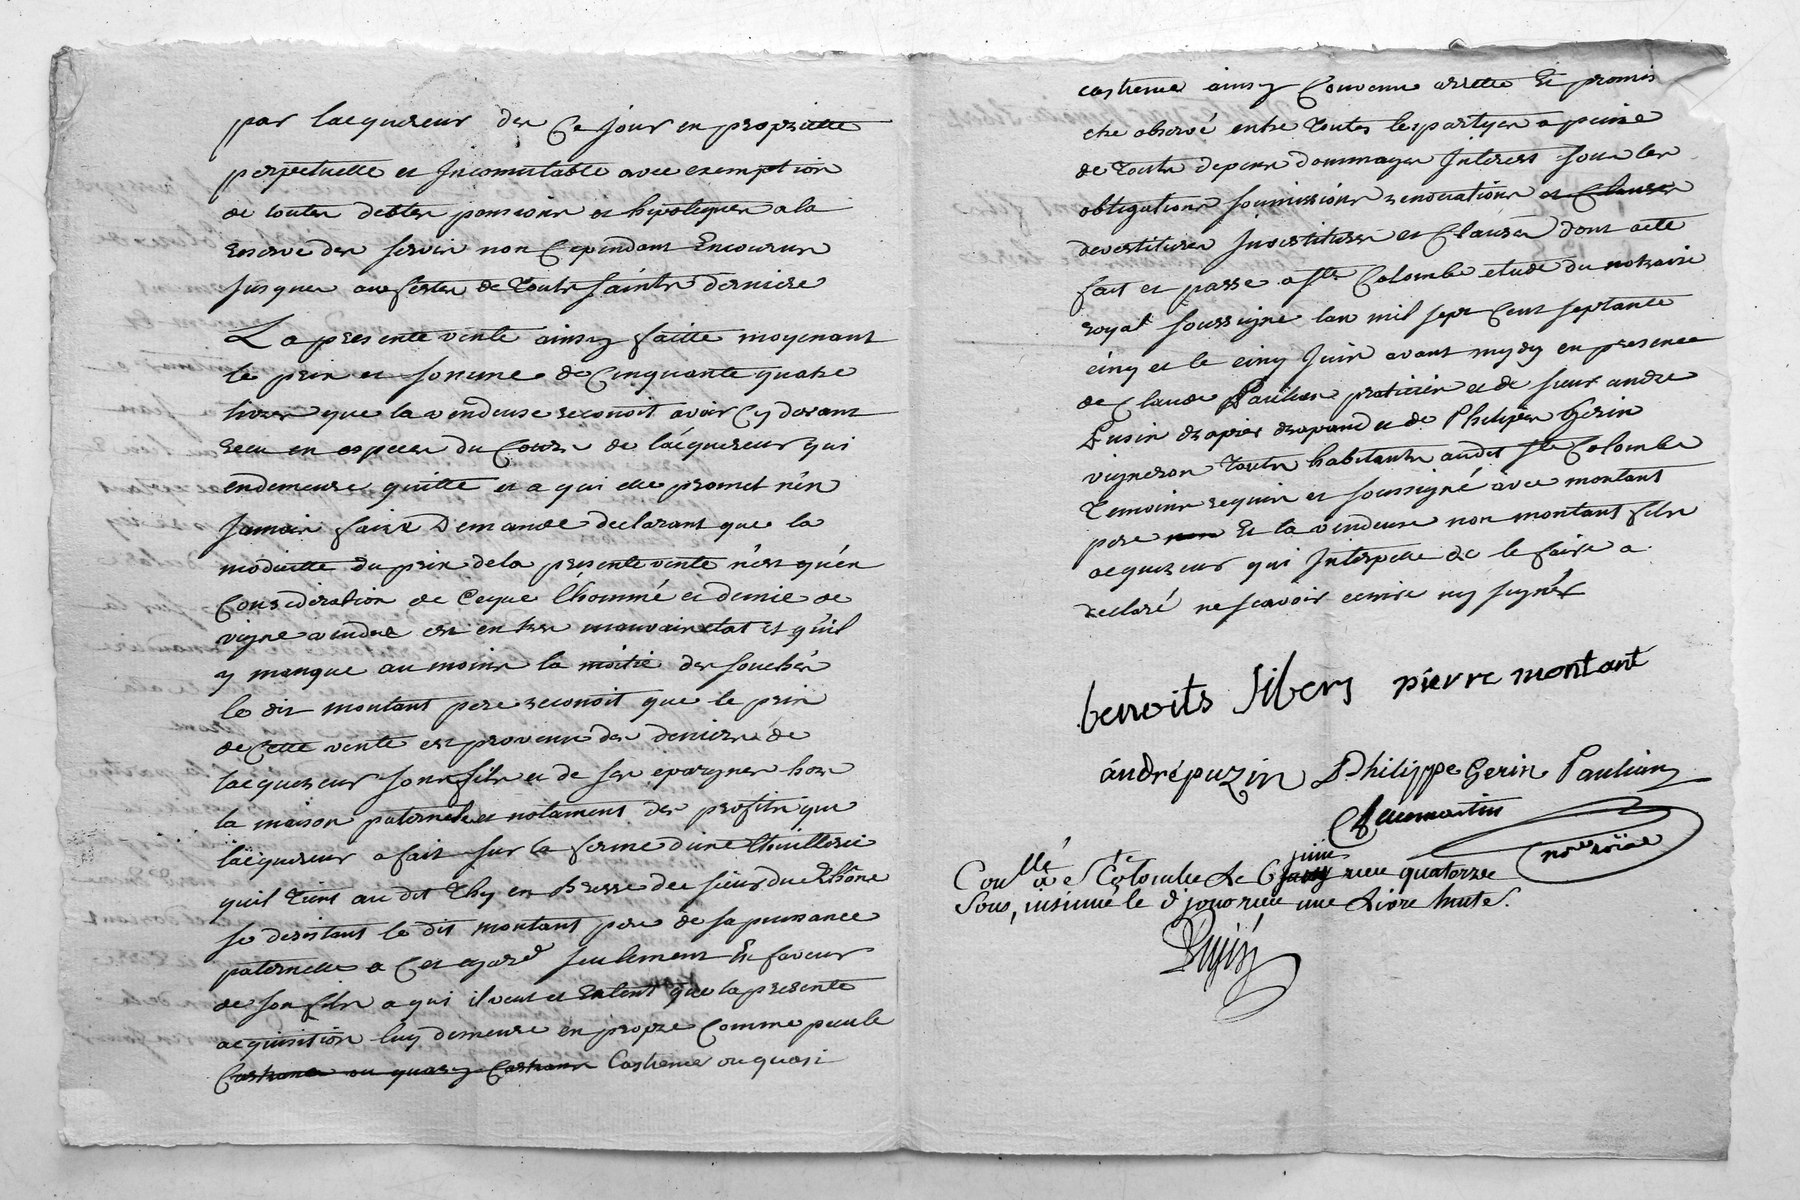 par lacquereur des Ce jour en proprieté
perpetuelle et Incomutable avec exemption
de toutes debtes pensions et hipoteques a la
reserve des servis non Cependant Encourus
jusques aux festes de Touts saints derniere
La presente vente ainsy faitte moyenant
le prix et somme de Cinquante quatre
livres que la vendeuse reconoit avoir Cy devant
receu en especes du Cours de lacquereur qui
endemeure quitte et a qui elle promet n'en
Jamais faire Demande declarant que la
modicitte du prix dela presente vente n'est qu'en
Consideration de Ceque l'hommé et demie de
vigne vendue est en tres mauvais etat et qu'il
y manque au moins la moitié des souches
le dit montant pere reconoit que le prix
de Cette vente est provenu des deniers de
lacquereur son fils et de ses epargnes hors
la maison paternelle et notament des profits que
lacquereur a fait sur la ferme d'une
qu'il tient au dit Thy en Bresse des sieur du Rhône
se desistant le dit montant pere de sa puissance
paternelle a Cet egard seulement En faveur
de son fils a qui il veut et Entent que la presente
acquisition luy demeure en propre Comme pecule
Castrense ou quasy Castrense Castrense ou quasi
castrense ainsy Convenu arretté Et promis
etre observé entre Toutes les partyes a peine
de Touts depens dommages Interest sous les
obligations soumissions renonciations et Clauses
devestitures Investitures et Clauses dont acte
fait et passé a Ste Colombe etude du notaire
royal soussigné lan mil sept Cent septante
cinq et le cinq Juin avant mydy en presence
de Claude Paulian praticien et de sieur andré
Pusin drapier drapand et de Philipe Gerin
vigneron Touts habitants audit Ste Colombe
Temoins requis et soussigné avec montant
pere non Et la vendeuse non montant fils
acquereur qui Interpelle de le faire a
declaré ne scavoir ecrire ny signer
benoits Sibers pierre montant
andré puzin Philippe Gerin Paulian
no.re roïal
Coñllé a Ste Colombe Le 6 juin reçu quatorze
Sous, insinué le d. jour reçu une Livre huit s.